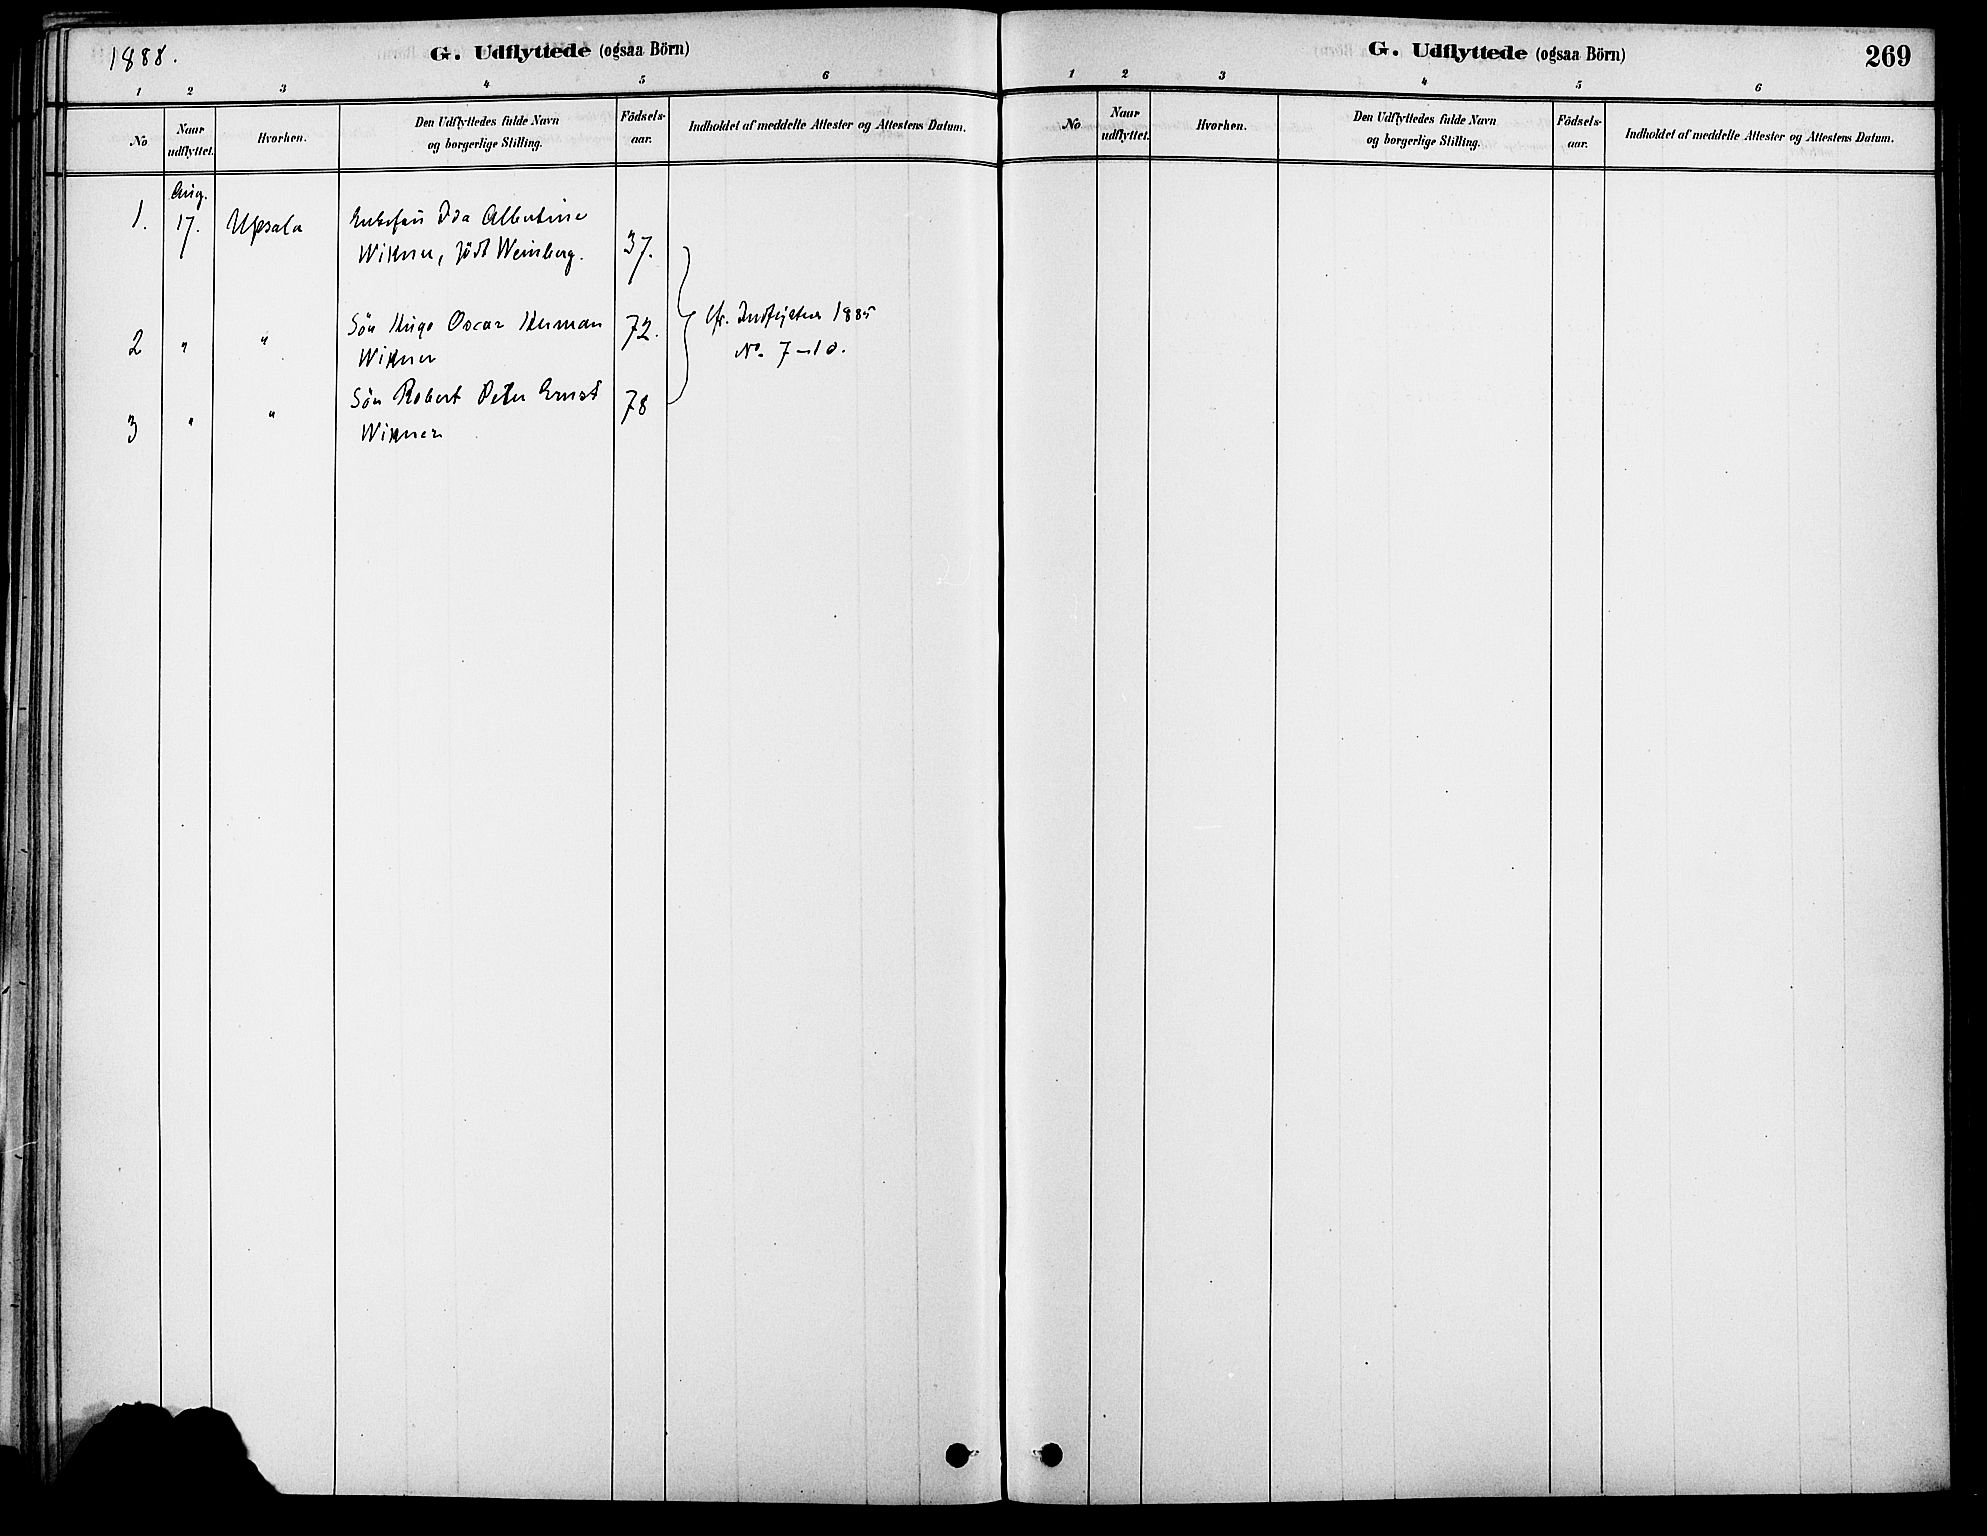 1888.
G. Udflyttede (ogsaa Börn)
1 2 3 4 5 6
No
Naar udflyttet.
Hvorhen.
Den Udflyttedes fulde Navn og borgerlige Stilling.
Födsels-aar.
Indholdet af meddelte Attester og Attestens Datum.
Aug.
1. 17. Upsala Enkefru Ida Albertine
Wikner, född Weinberg. 37.
2 " " Sön Hugo Oscar Herman 72.
Wikner
3 " " Sön Robert Peter Ernst 78
Wikner
cfr. Indflyttere 1885
No. 7-10.
G. Udflyttede (ogsaa Börn)
269
1 2 3 4 5 6
No
Naar udflyttet.
Hvorhen.
Den Udflyttedes fulde Navn og borgerlige Stilling.
Födsels-aar.
Indholdet af meddelte Attester og Attestens Datum.